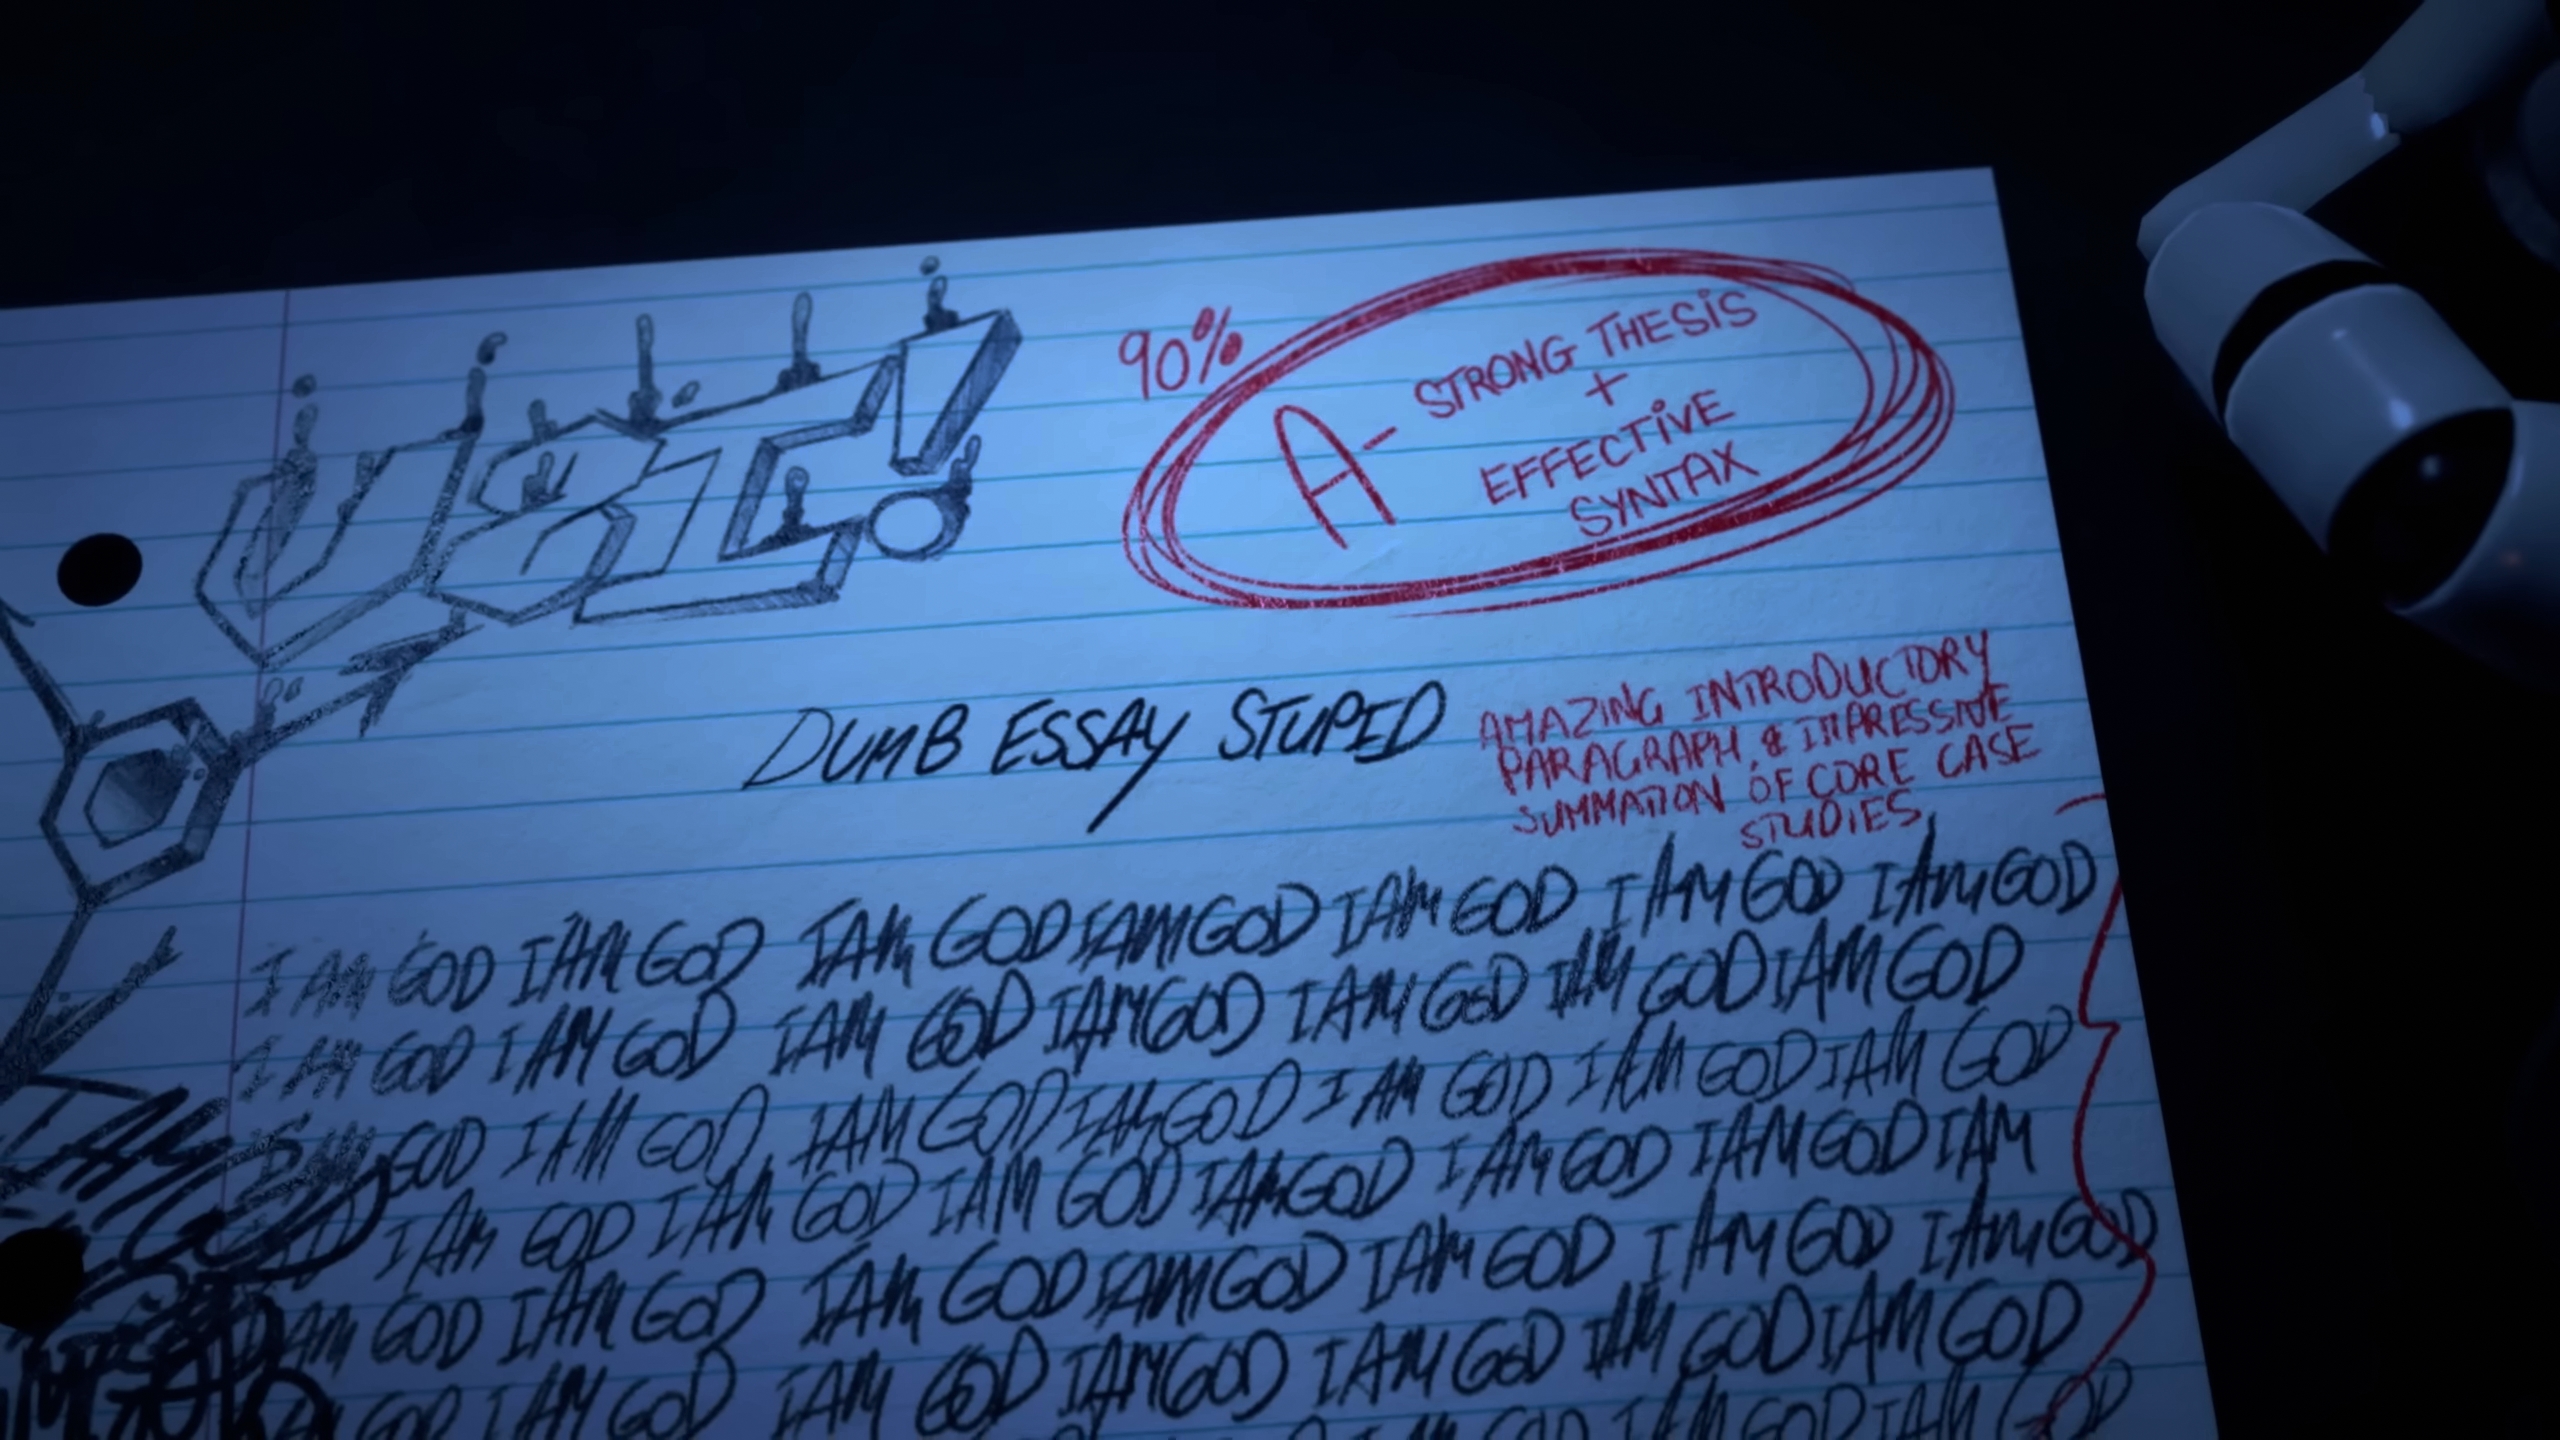 UZI!
90%
A- STRONG THESIS
+
EFFECTIVE
SYNTAX
DUMB ESSAY STUPID
AMAZING INTRODUCTORY
PARAGRAPH, & IMPRESSIVE
SUMMATION OF CORE CASE
STUDIES
I AM GOD I AM GOD I AM GOD I AM GOD I AM GOD I AM GOD I AM GOD
I AM GOD I AM GOD I AM GOD I AM GOD I AM GOD I AM GOD I AM GOD
I AM GOD I AM GOD I AM GOD I AM GOD I AM GOD I AM GOD I AM GOD
GOD I AM GOD I AM GOD I AM GOD I AM GOD I AM GOD I AM GOD I AM
I AM GOD I AM GOD I AM GOD I AM GOD I AM GOD I AM GOD I AM GOD
I AM GOD I AM GOD I AM GOD I AM GOD I AM GOD I AM GOD I AM GOD
I AM GOD I AM GOD I AM GOD
I AM
GOD
I AM GOD